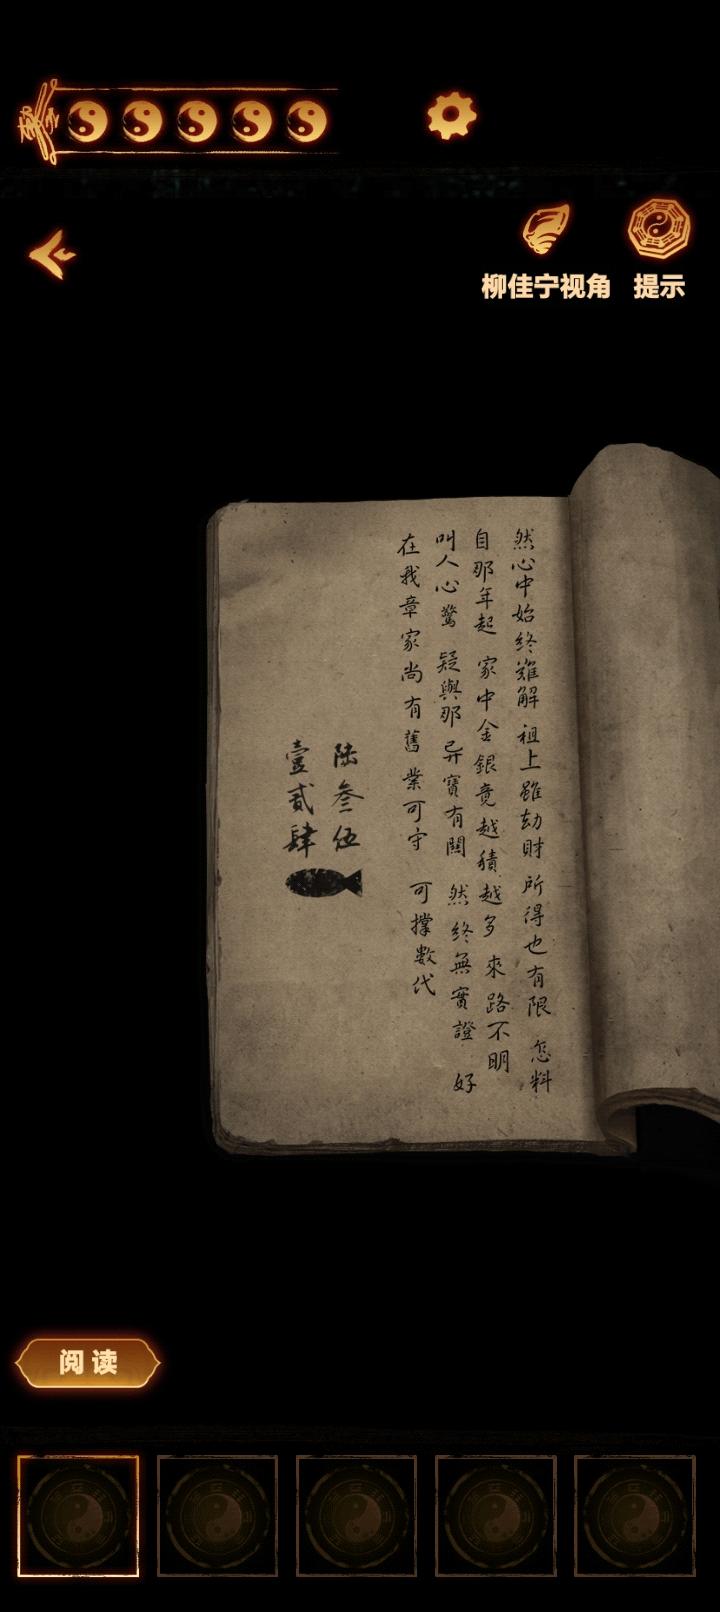 柳佳宁视角
提示
然心中始終難解 祖上雖劫財 所得也有限 怎料
自那年起 家中金銀竟越積越多 來路不明
叫人心驚 疑與那异寶有關 然終無實證 好
在我章家尚有舊業可守 可撐數代
陆叁伍
壹貳肆
阅读